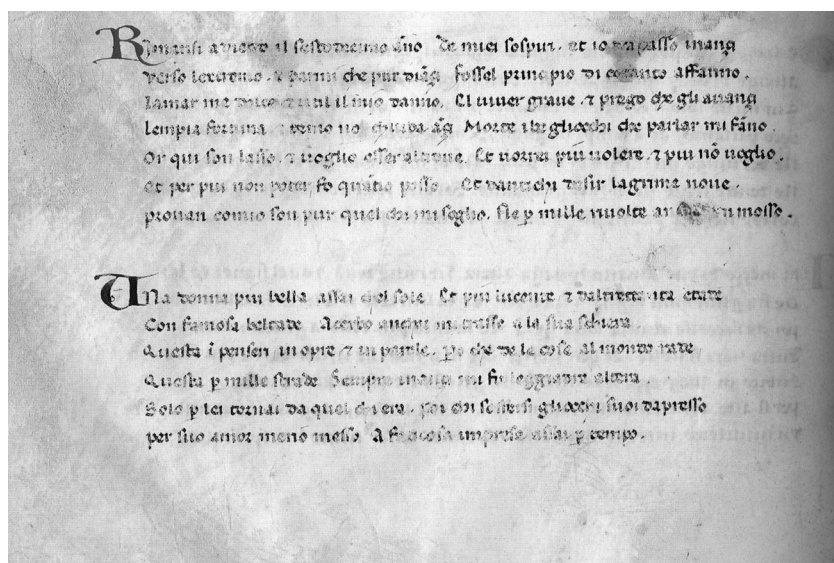 Rimansi a dietro il sestodecimo año De miei sospiri. et io trapasso inançi
Verso lextremo. & parmi che pur diãçi fossel principio di cotanto affanno.
Lamar me dolce & util il mio danno. El viver grave. & prego che gli avançi
lempia fortuna & temo nõ chiuda ãçi Morte i begliocchi che parlar mi fãno.
Or qui son lasso. & voglio esser altrove. Et vorrei piu volere. & piu nõ voglio.
Et per piu non poter fo quãtio posso. Et dantichi desir lagrime nove.
provan comio son pur quel chi mi soglio. Ne p mille rivolte mosso.
Una donna piu bella assai chel sole Et piu lucente & daltrettanta etate
Con famosa beltade Acerbo anchor mi trasse a la sua schiera
Questa ĩ penseri in opre & in parole. po che de le cose al mondo rade
Questa p mille strade Sempre inançi mi fu leggiadra altera
Solo p lei tornai da quel chi era. poi chi soffersi gliocchi suoi dapresso
per suo amor mero messo A faticosa impresa assai p tempo.